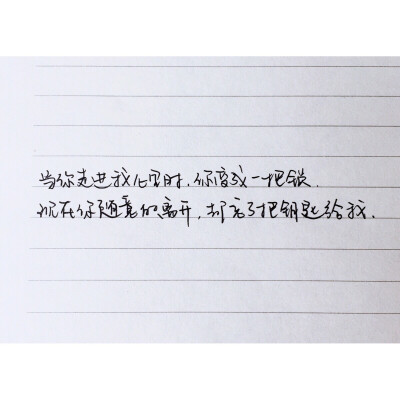 当你走进我心里时，你变成一把锁.
现在你随意的离开，却忘了把钥匙给我.